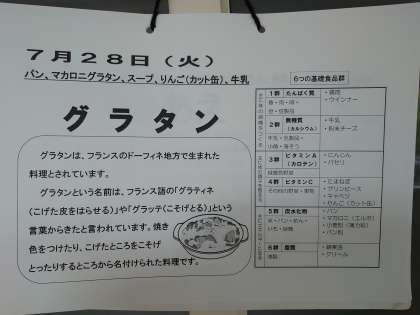 7月28日（火）
パン、マカロニグラタン、スープ、りんご（カット缶）、牛乳
6つの基礎食品群
グラタン
グラタンは、フランスのドーフィネ地方で生まれた
料理とされています。
グラタンという名前は、フランス語の「グラティネ
（こげた皮をはらせる）」や「グラッテ（こそげとる）」という
言葉からきたと言われています。焼き
色をつけたり、こげたところをこそげ
とったりするところから名付けられた料理です。
1群 たんぱく質
・鶏肉
・ウインナー
2群 無機質
（カルシウム）
・牛乳
・粉末チーズ
3群 ビタミンA
（カロテン）
・にんじん
・パセリ
4群 ビタミンC
・たまねぎ
・グリンピース
・キャベツ
・りんご（カット缶）
5群 炭水化物
・パン
・マカロニ（エルボ）
・小麦粉（薄力粉）
・パン粉
6群 脂質